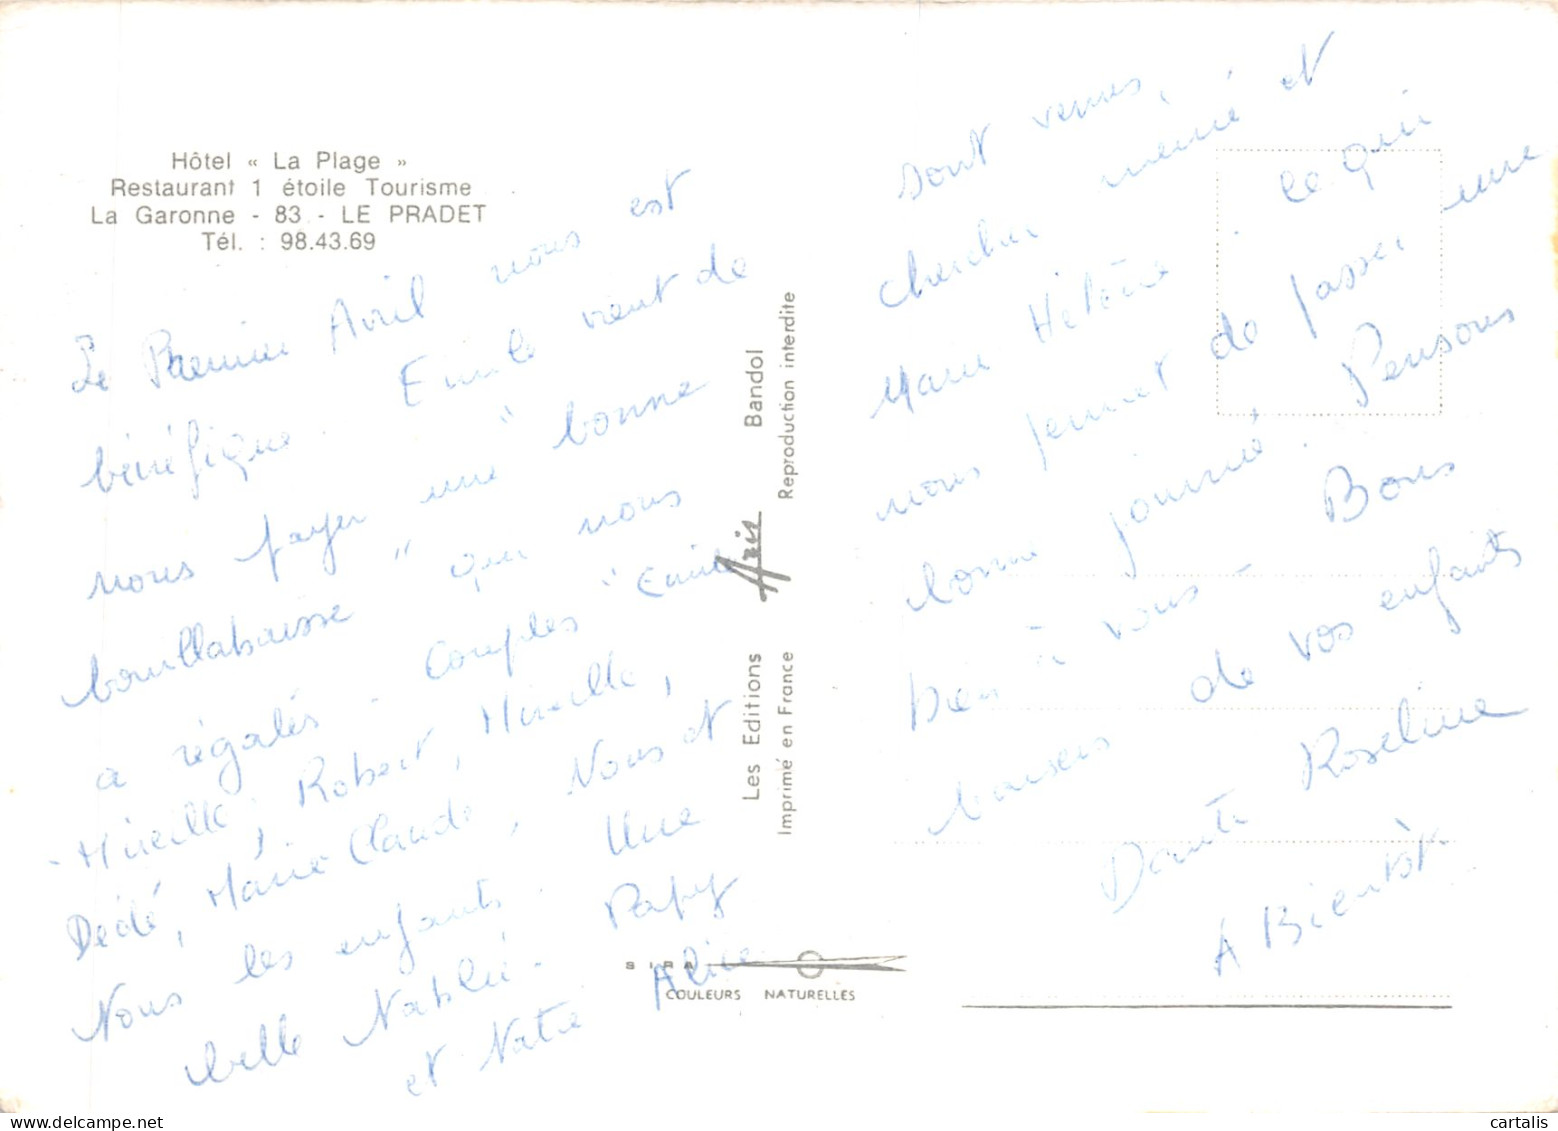 Hôtel « La Plage »
Restaurant 1 étoile Tourisme
La Garonne - 83 - LE PRADET
Tél. : 98.43.69
Le Premier Avril nous est
bénéfique. Emile vient de
nous payer une " bonne
bouillabaisse " qui nous
a régalés. Couples " Emile
- Mireille, Robert, Mireille,
Dédé, Marie Claude, Nous et
Nous les enfants. Une
belle Tablée. Papy
et Notre Alice
Les Editions Aris Bandol
Imprimé en France Reproduction interdite
SIRA
COULEURS NATURELLES
sont venus,
chercher mémé et
Marie Hélène. ce qui
nous permet de passer une
bonne journée. Pensons
bien à vous - Bons
baisers de vos enfants
Roseline
A Bientôt.
cartalis